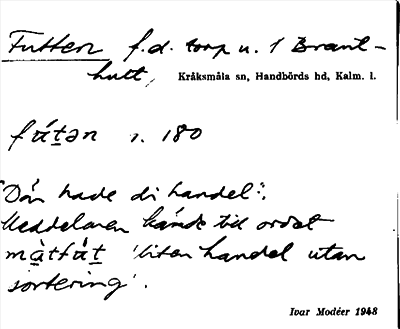 Futten f.d. torp u. 1 Brant-
hult, Kråksmåla sn, Handbörds hd, Kalm. l.
fú̱tən n. 180
"Där hade di handel":
Meddelaren kände till ordet
mà̱tfú̱t 'liten handel utan
sortering'.
Ivar Modéer 1948